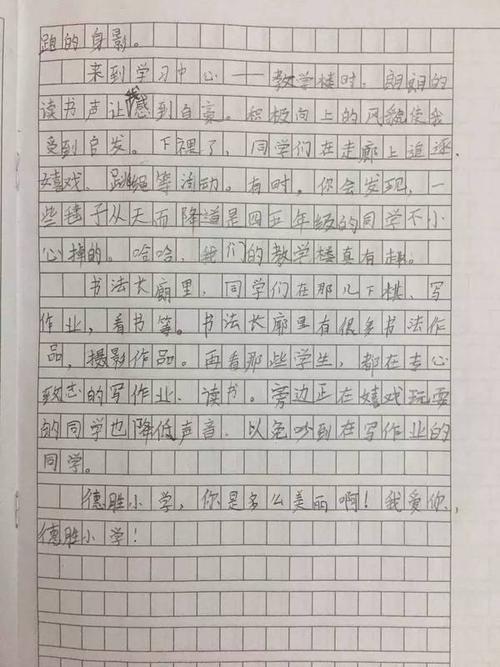 跑的身影。
来到学习中心——教学楼时，朗朗的
读书声让我感到自豪。积极向上的风貌使我
受到启发。下课了，同学们在走廊上追逐、
嬉戏、跳绳等活动。有时，你会发现，一
些毽子从天而降道是四五年级的同学不小
心掉的。哈哈，我们的教学楼真有趣。
书法长廊里，同学们在那儿下棋，写
作业，看书等。书法长廊里有很多书法作
品，摄影作品。再看那些学生，都在专心
致志的写作业、读书。旁边正在嬉戏玩耍
的同学也降低声音，以免吵到在写作业的
同学。
德胜小学，你是多么美丽啊！我爱你，
德胜小学！